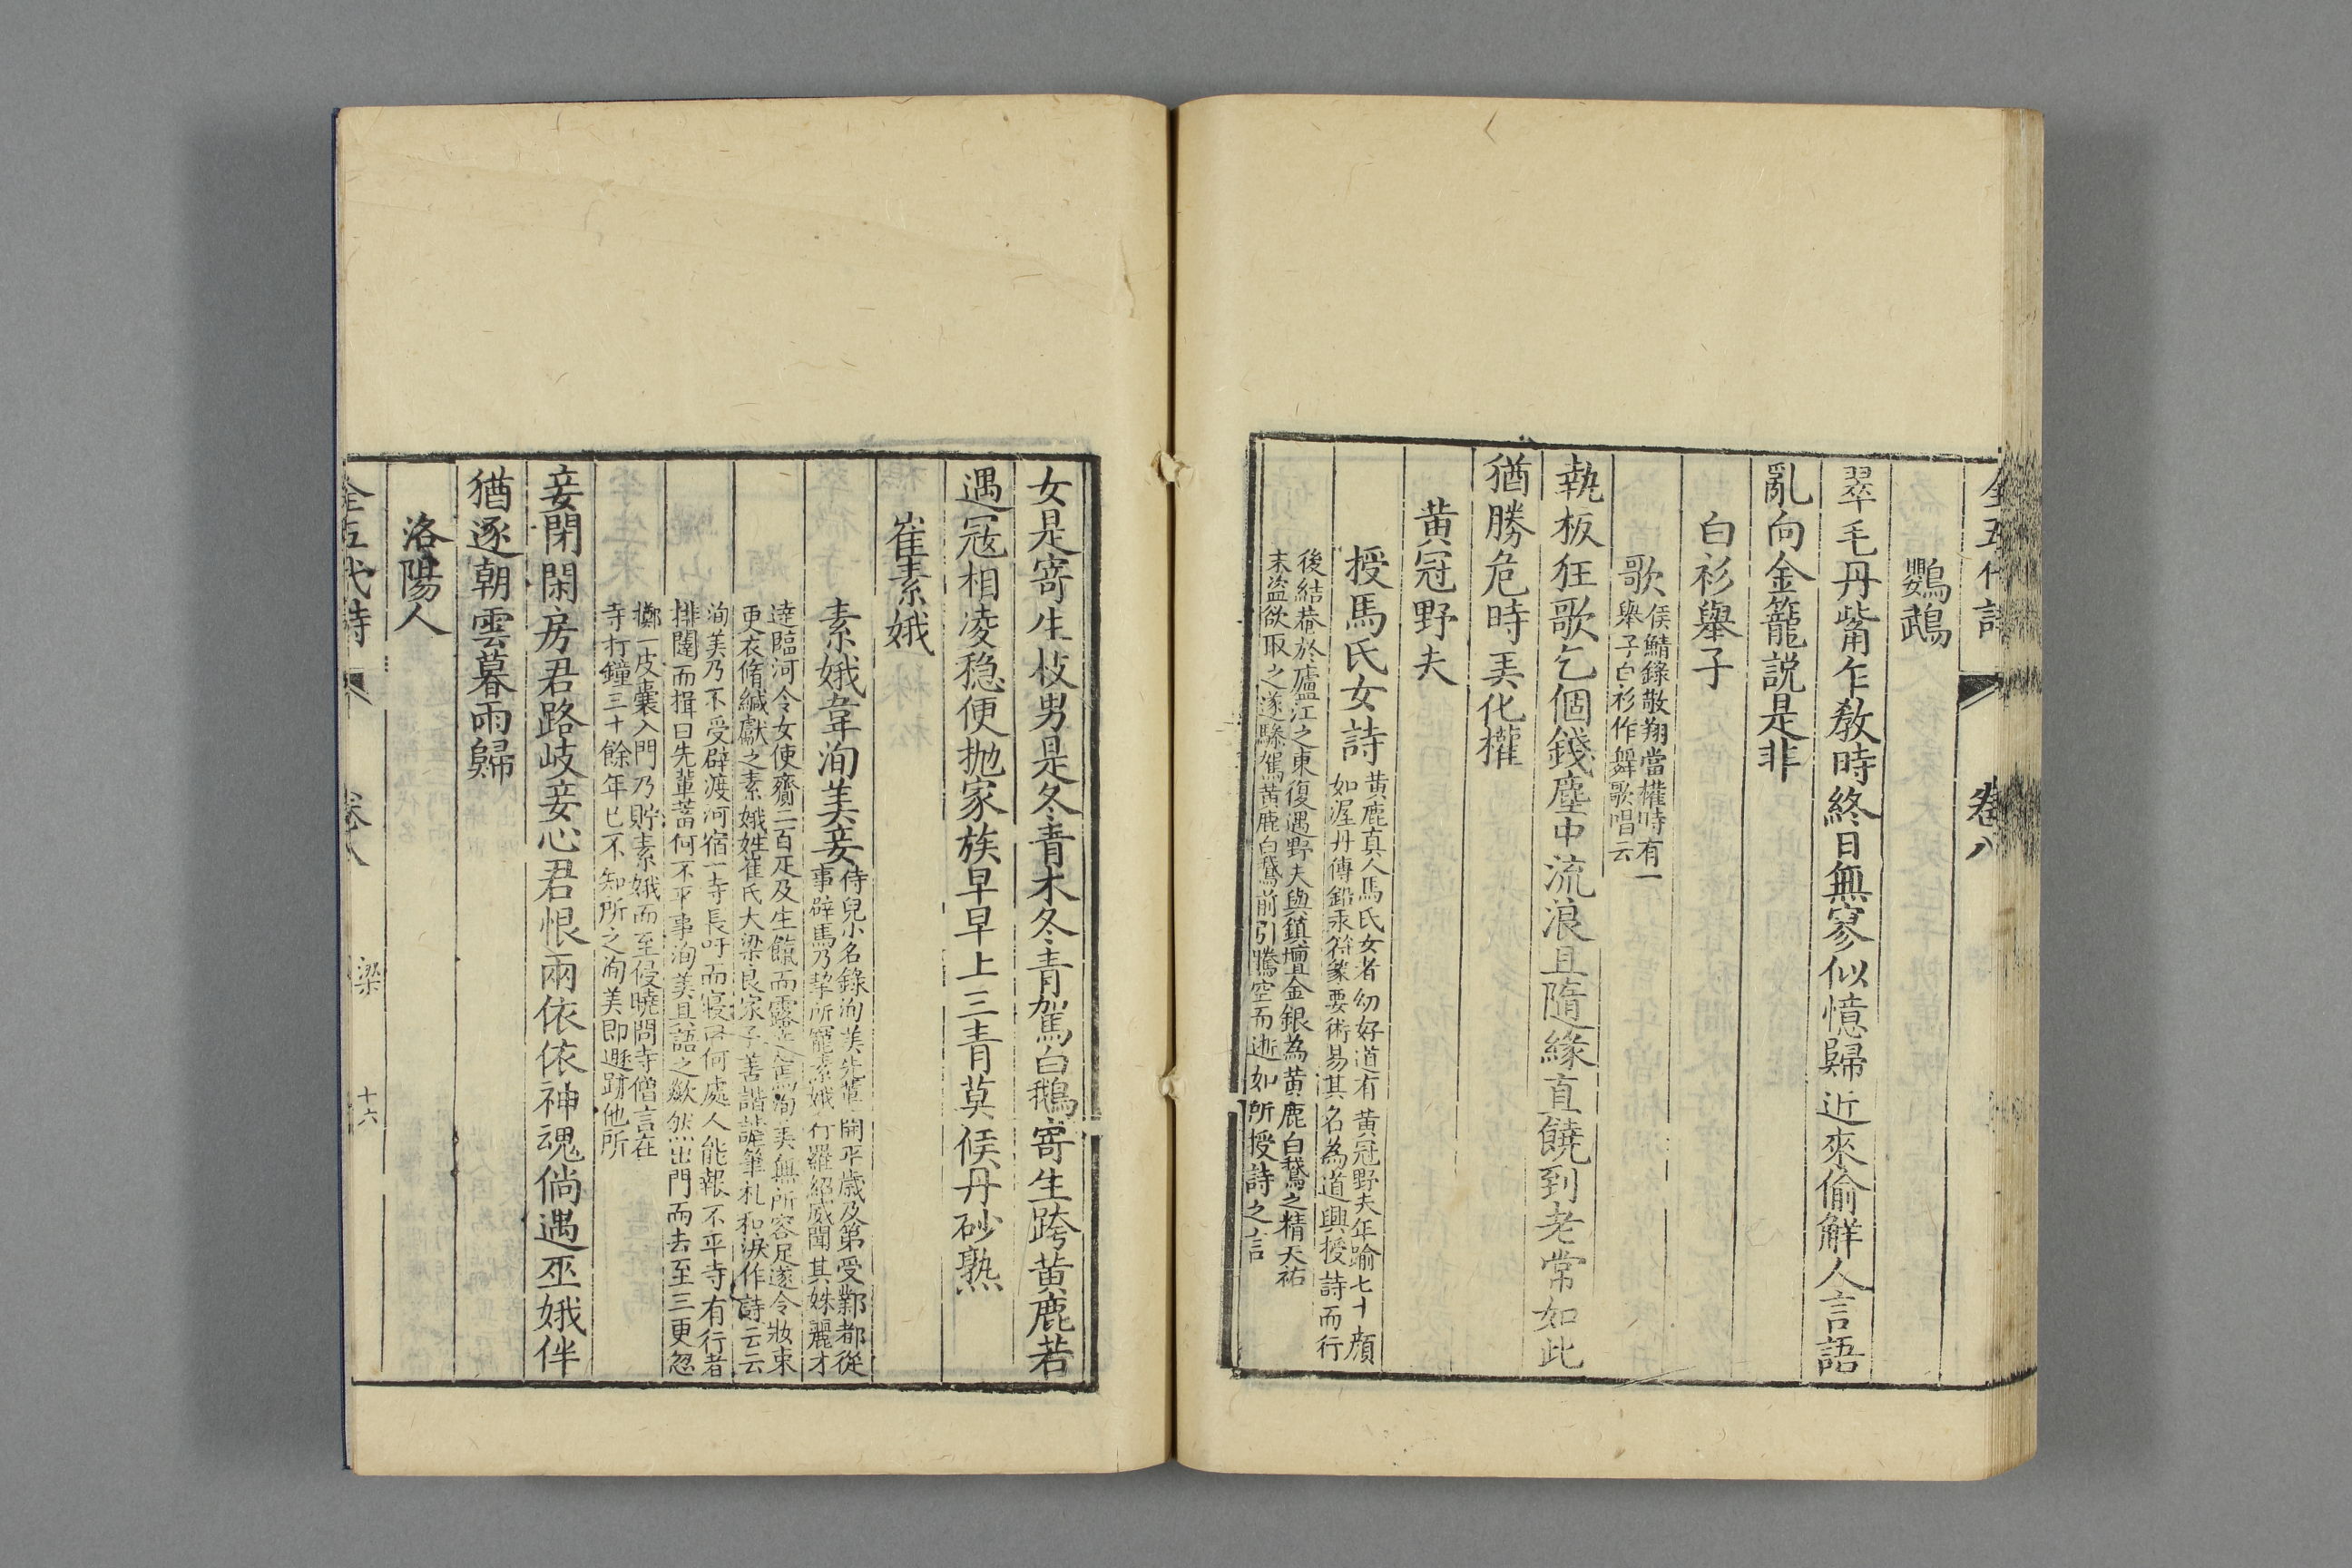 全五代詩 卷八
鸚鵡
翠毛丹觜乍敎時終日無寥似憶歸近來偷解人言語
亂向金籠説是非
白衫舉子
歌
侯鯖錄敬翔當權時有一
舉子白衫作舞歌唱云
執板狂歌乞個錢塵中流浪且隨緣直饒到老常如此
猶勝危時弄化權
黃冠野夫
授馬氏女詩
黃鹿真人馬氏女者幼好道有黃冠野夫年踰七十顔
如渥丹傳鉛汞符篆要術易其名為道興授詩而行
後結菴於廬江之東復遇野夫與鎮壇金銀為黃鹿白鵞之精天祐
末盜欲取之遂驂駕黃鹿白鵞前引騰空而逝如所授詩之言
女是寄生枝男是冬青木冬青駕白鵞寄生跨黃鹿若
遇冦相凌穏便抛家族早早上三青莫候丹砂熟
崔素娥
素娥韋洵美妾
侍兒小名錄洵美先輩開平歲及第受鄴都從
事辟焉乃挈所寵素娥行羅紹威聞其姝麗才
逹臨河令女使齎二百疋及生餼而露之洵美無所容足遂令妝束
更衣脩緘獻之素娥姓崔氏大梁良家子善諧謔筆札和淚作詩云云
洵美乃不受辟渡河宿一寺長吁而寢曰何處人能報不平寺有行者
排闥而揖曰先輩蓄何不平事洵美具語之歘然出門而去至三更忽
擲一皮囊入門乃貯素娥而至侵曉問寺僧言在
寺打鐘三十餘年已不知所之洵美即遯跡他所
妾閉閑房君路岐妾心君恨兩依依神魂倘遇巫娥伴
猶逐朝雲暮雨歸
洛陽人
全五代詩 卷八 梁 十六